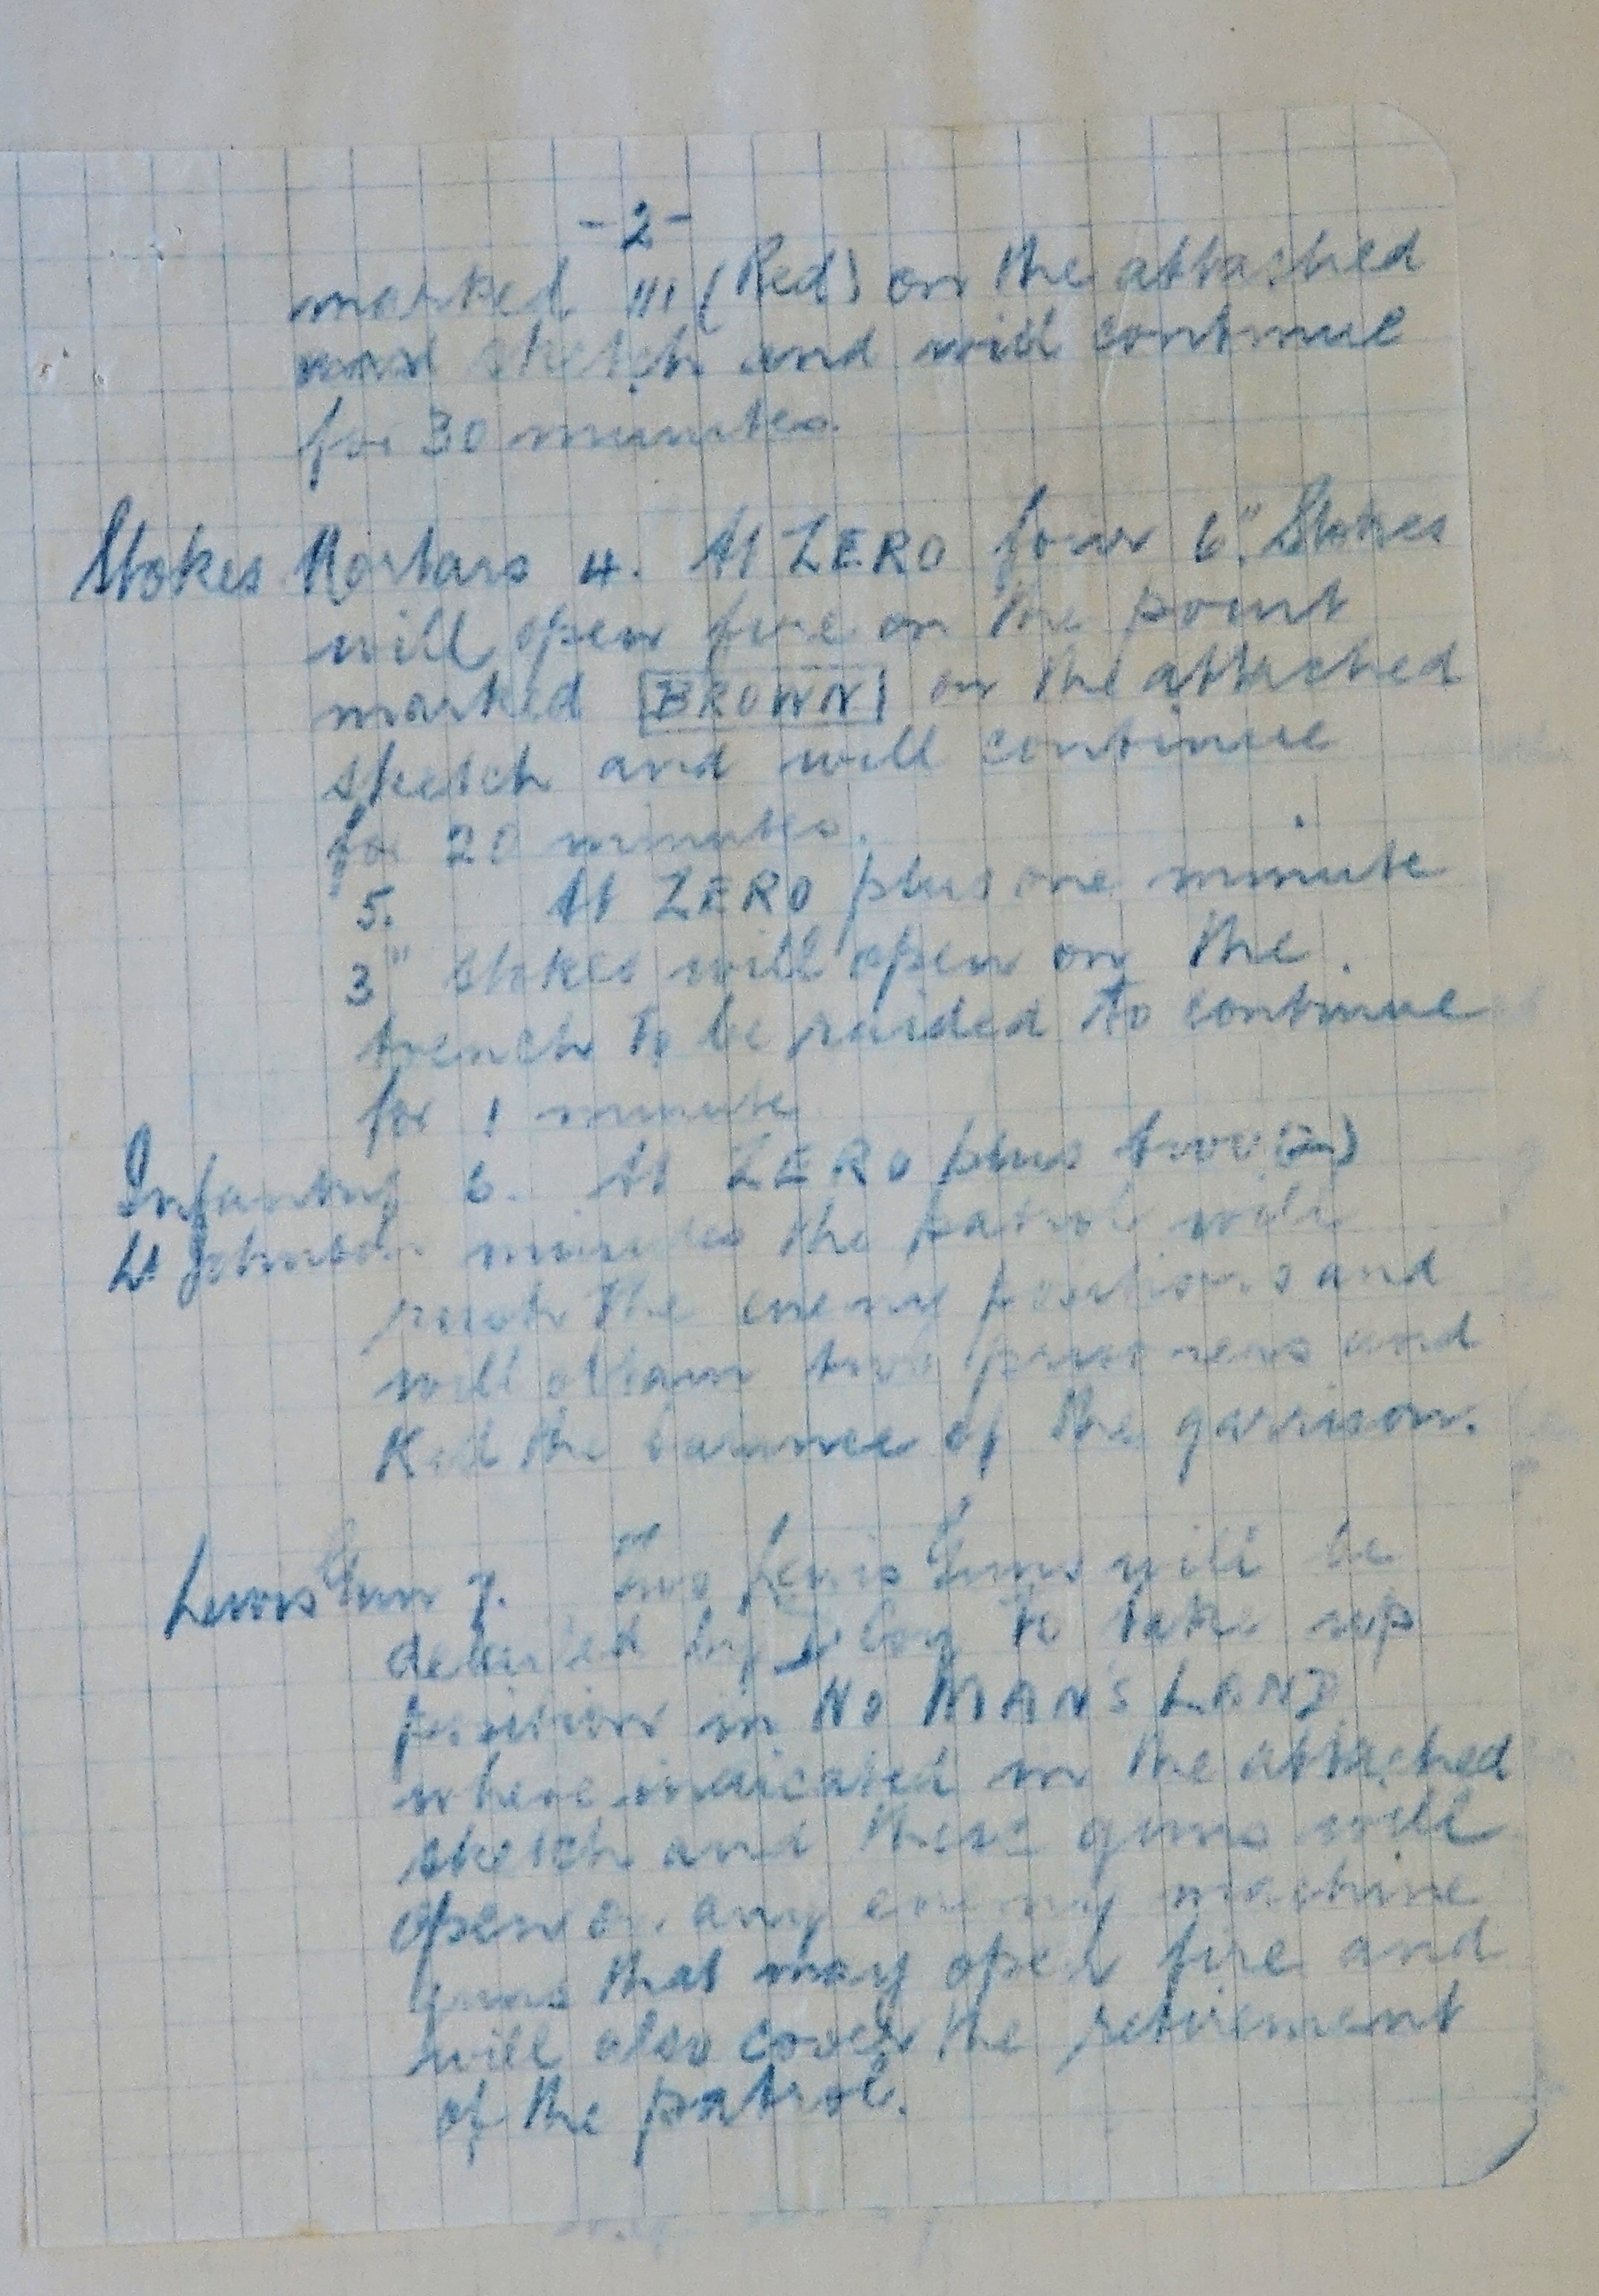 -2-
marked III (Red) on the attached
sketch and will continue
for 30 minutes.
Stokes Mortars 4. At ZERO four 6" Stokes
will open fire on the point
marked BROWN on the attached
sketch and will continue
for 20 minutes.
5. At ZERO plus one minute
3" stokes will open on the
trench to be raided to continue
for 1 minute
Infantry 6. At ZERO plus two (2)
Lt Johnson minutes the patrol will
rush the enemy positions and
will obtain two prisoners and
Kill the balance of the garrison.
Lewis Gun 7. Two Lewis Guns will be
detailed by D Coy to take up
position in NO MAN'S LAND
where indicated on the attached
sketch and these guns will
open on any enemy machine
guns that may open fire and
will also cover the retirement
of the patrol.